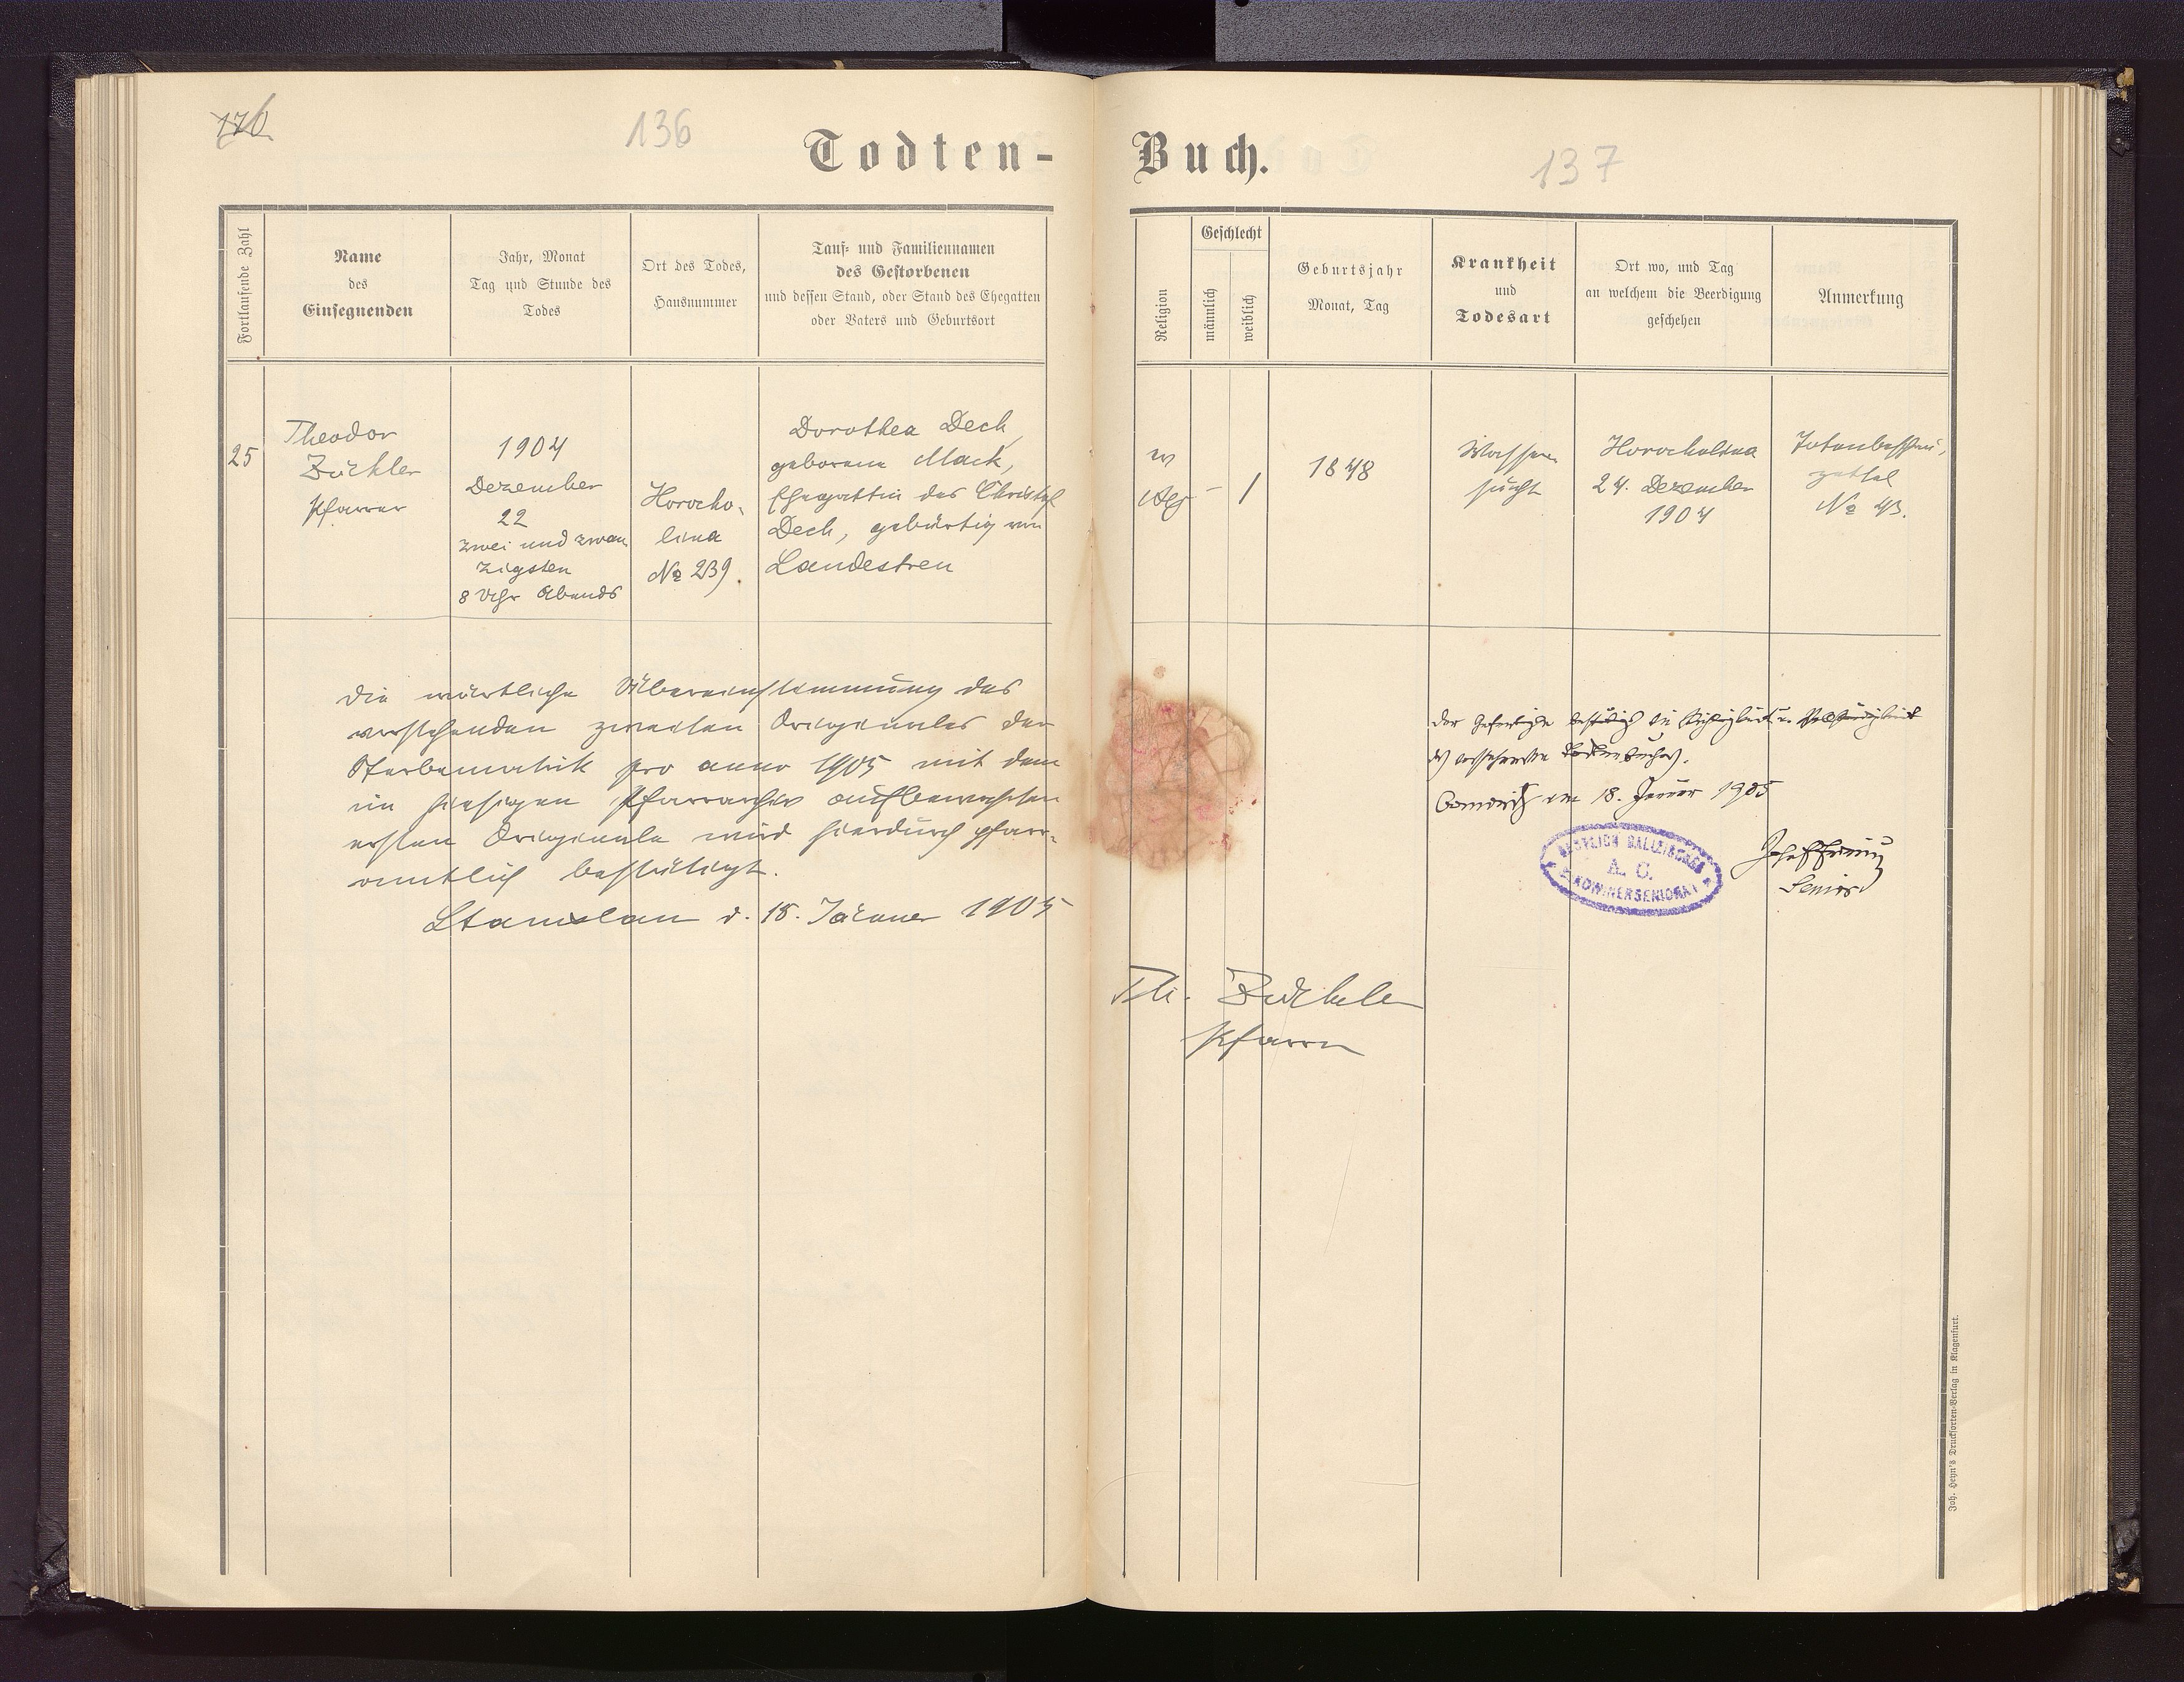 170
136
Todten-
Fortlaufende Zahl
Name
des
Einsegnenden
Jahr, Monat
Tag und Stunde des
Todes
Ort des Todes,
Hausnummer
Tauf- und Familiennamen
des Gestorbenen
und dessen Stand, oder Stand des Ehegatten
oder Vaters und Geburtsort
25
Theodor
Zöckler
Pfarrer
1904
Dezember
22
zwei und zwan
zigsten
8 Uhr Abends
Horocho-
lina
No 239.
Dorothea Dech,
geborene Mack,
Ehegattin des Christof
Dech, gebürtig von
Landestreu
Die wörtliche Übereinstimmung des
vorstehenden zweiten Originales der
Sterbematrik pro anno 1905 mit dem
im hiesigen Pfarrarchiv aufbewahrten
ersten Originale wird hierdurch pfarr-
amtlich bestätigt.
Stanislau d. 15. Jänner 1905
Buch.
137
Religion
Geschlecht
männlich
weiblich
Geburtsjahr
Monat, Tag
Krankheit
und
Todesart
Ort wo, und Tag
an welchem die Beerdigung
geschehen
Anmerkung
ev
AB
–
1
1848
Wasser
sucht
Horocholina
24. Dezember
1904
Totenbeschau-
zettel
No 43.
Der Gefertigte bestätigt die Richtigkeit u. Vollständigkeit
des vorstehenden Totenbuches.
am 18. Jänner 1905
Senior
OESTLICH GALIZISCHES
A. C.
BUKOWINERSENIORAT
Th. Zöckler
Pfarrer
Joh. Heyn's Drucksorten-Verlag in Klagenfurt.